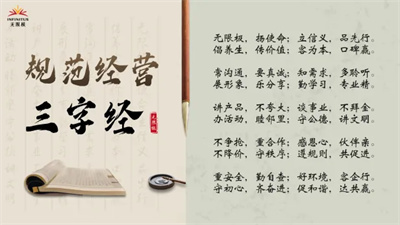 INFINITUS
无限极
规范经营
三字经
无限极，扬使命；立信义，品先行。
倡养生，传价值；容为本，口碑赢。
常沟通，要真诚；知需求，多聆听。
展形象，乐分享；勤学习，专业精。
讲产品，不夸大；谈事业，不拜金。
办活动，睦邻里；守公德，讲文明。
不争抢，重合作；感恩心，伙伴亲。
不降价，守秩序；遵规则，共促进。
重安全，勤自查；好环境，客企行。
守初心，齐奋进；促和谐，达共赢。